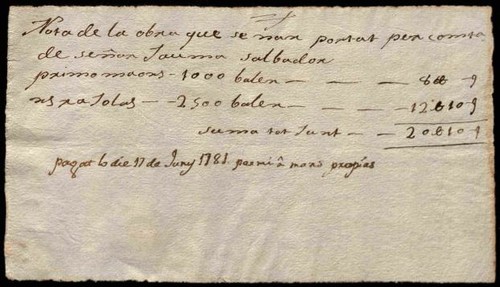 Nota de la obra que se nan portat per conta
de señor Jauma Salbador
primo maons - 1000 balen - - - 8ll - 9
mes raJolas - 2500 balen - - 12ll 10 9
suma tot Junt - 20ll 10 9
pagat lo die 17 de Juny 1781 per mi â mans propias